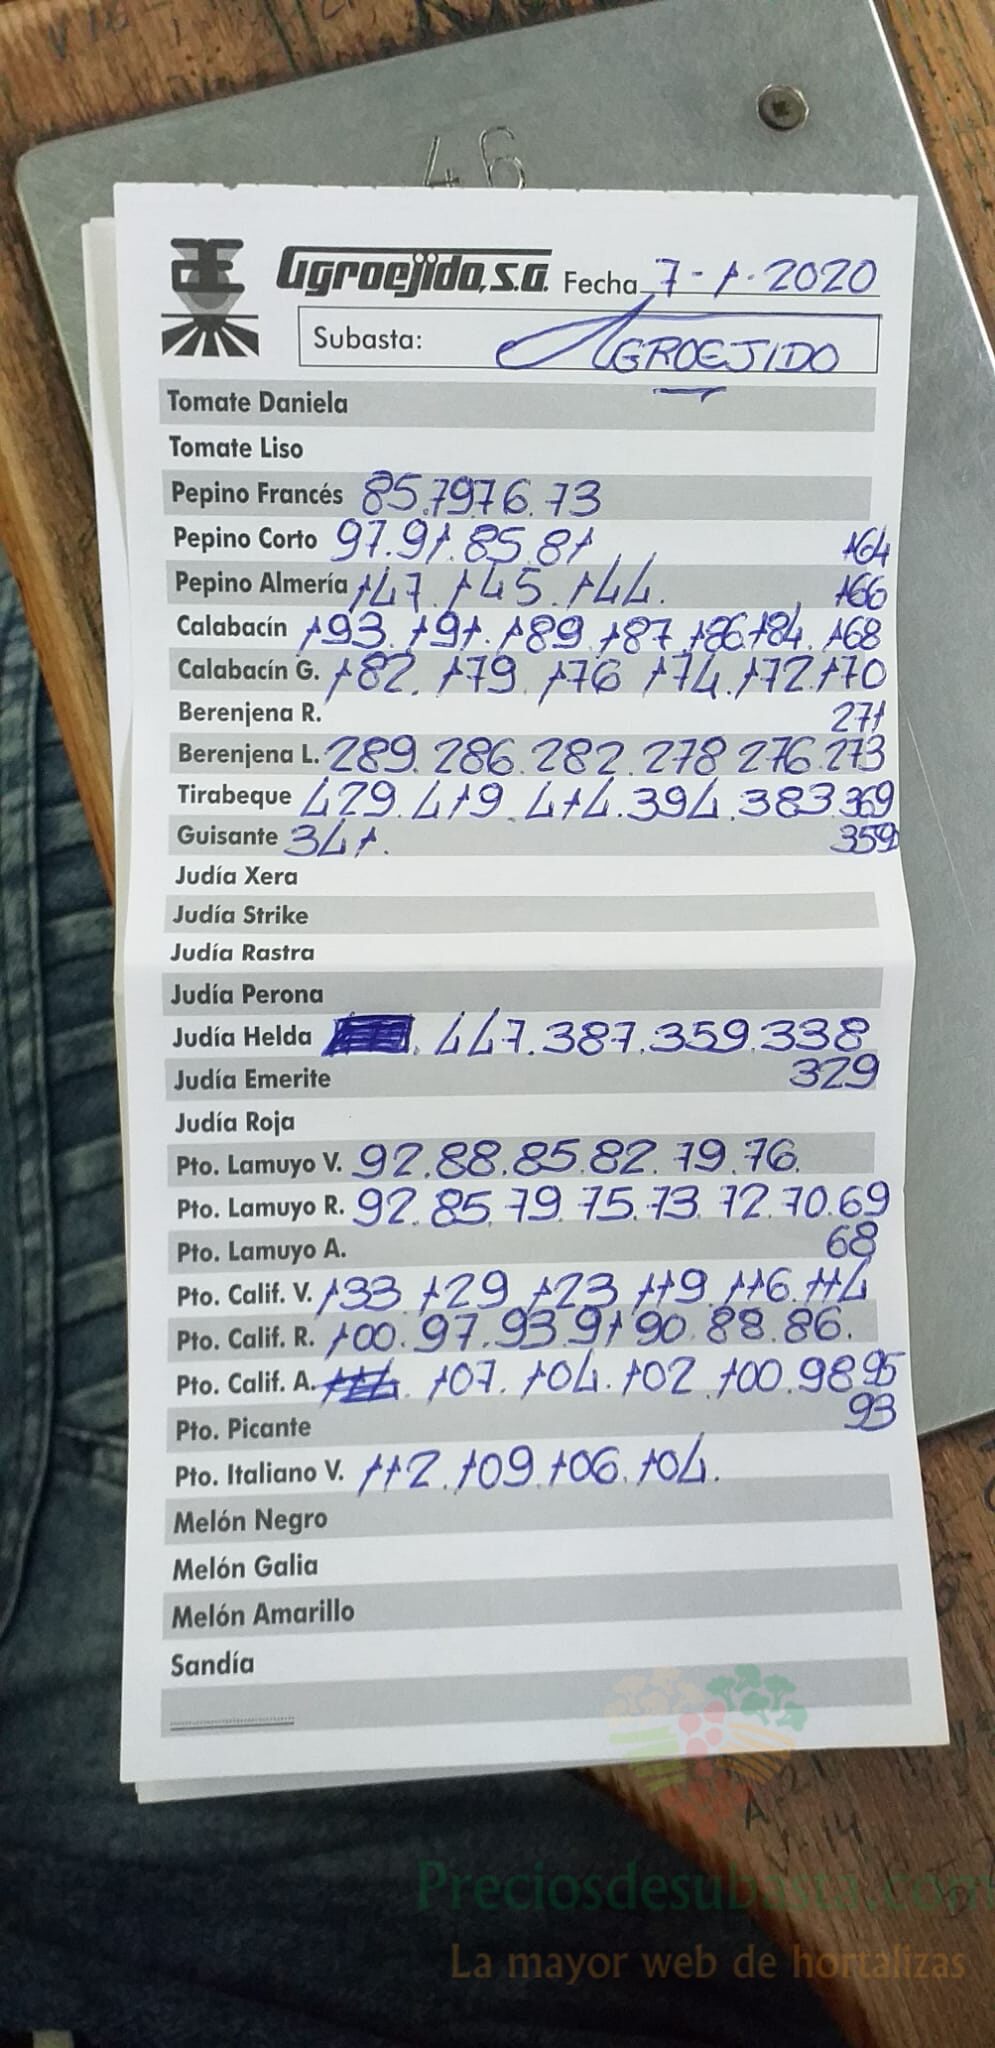 46
Agroejido, S.A. Fecha 7-1-2020
Subasta: AGROEJIDO
Tomate Daniela
Tomate Liso
Pepino Francés 85.79.76.73
Pepino Corto 97.91.85.81
164
Pepino Almería 147.145.144.
166
Calabacín 193.191.189.187.186.184.168
Calabacín G. 182.179.176.174.172.170
Berenjena R.
271
Berenjena L. 289.286.282.278.276.273
Tirabeque 429.419.414.394.383.369
Guisante 341.
359
Judía Xera
Judía Strike
Judía Rastra
Judía Perona
Judía Helda 447.387.359.338
Judía Emerite
329
Judía Roja
Pto. Lamuyo V. 92.88.85.82.79.76.
Pto. Lamuyo R. 92.85.79.75.73.72.70.69
Pto. Lamuyo A.
68
Pto. Calif. V. 133.129.123.119.116.114
Pto. Calif. R. 100.97.93.91.90.88.86.
Pto. Calif. A. 107.104.102.100.98.95
Pto. Picante
93
Pto. Italiano V. 112.109.106.104.
Melón Negro
Melón Galia
Melón Amarillo
Sandía
Preciosdesubasta.com
La mayor web de hortalizas